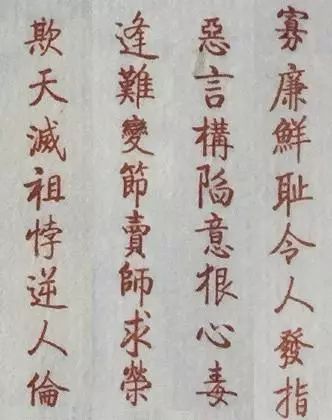 寡廉鮮耻令人發指
惡言構陷意狠心毒
逢難變節賣師求榮
欺天滅祖悖逆人倫